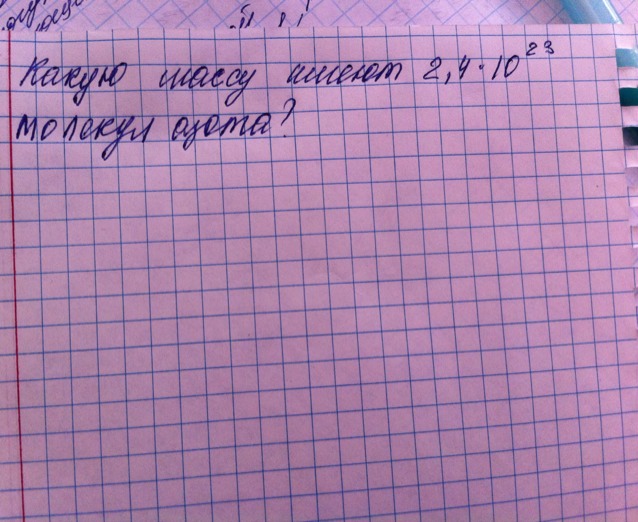 Какую массу имеют 2,4·10²³
молекул азота?